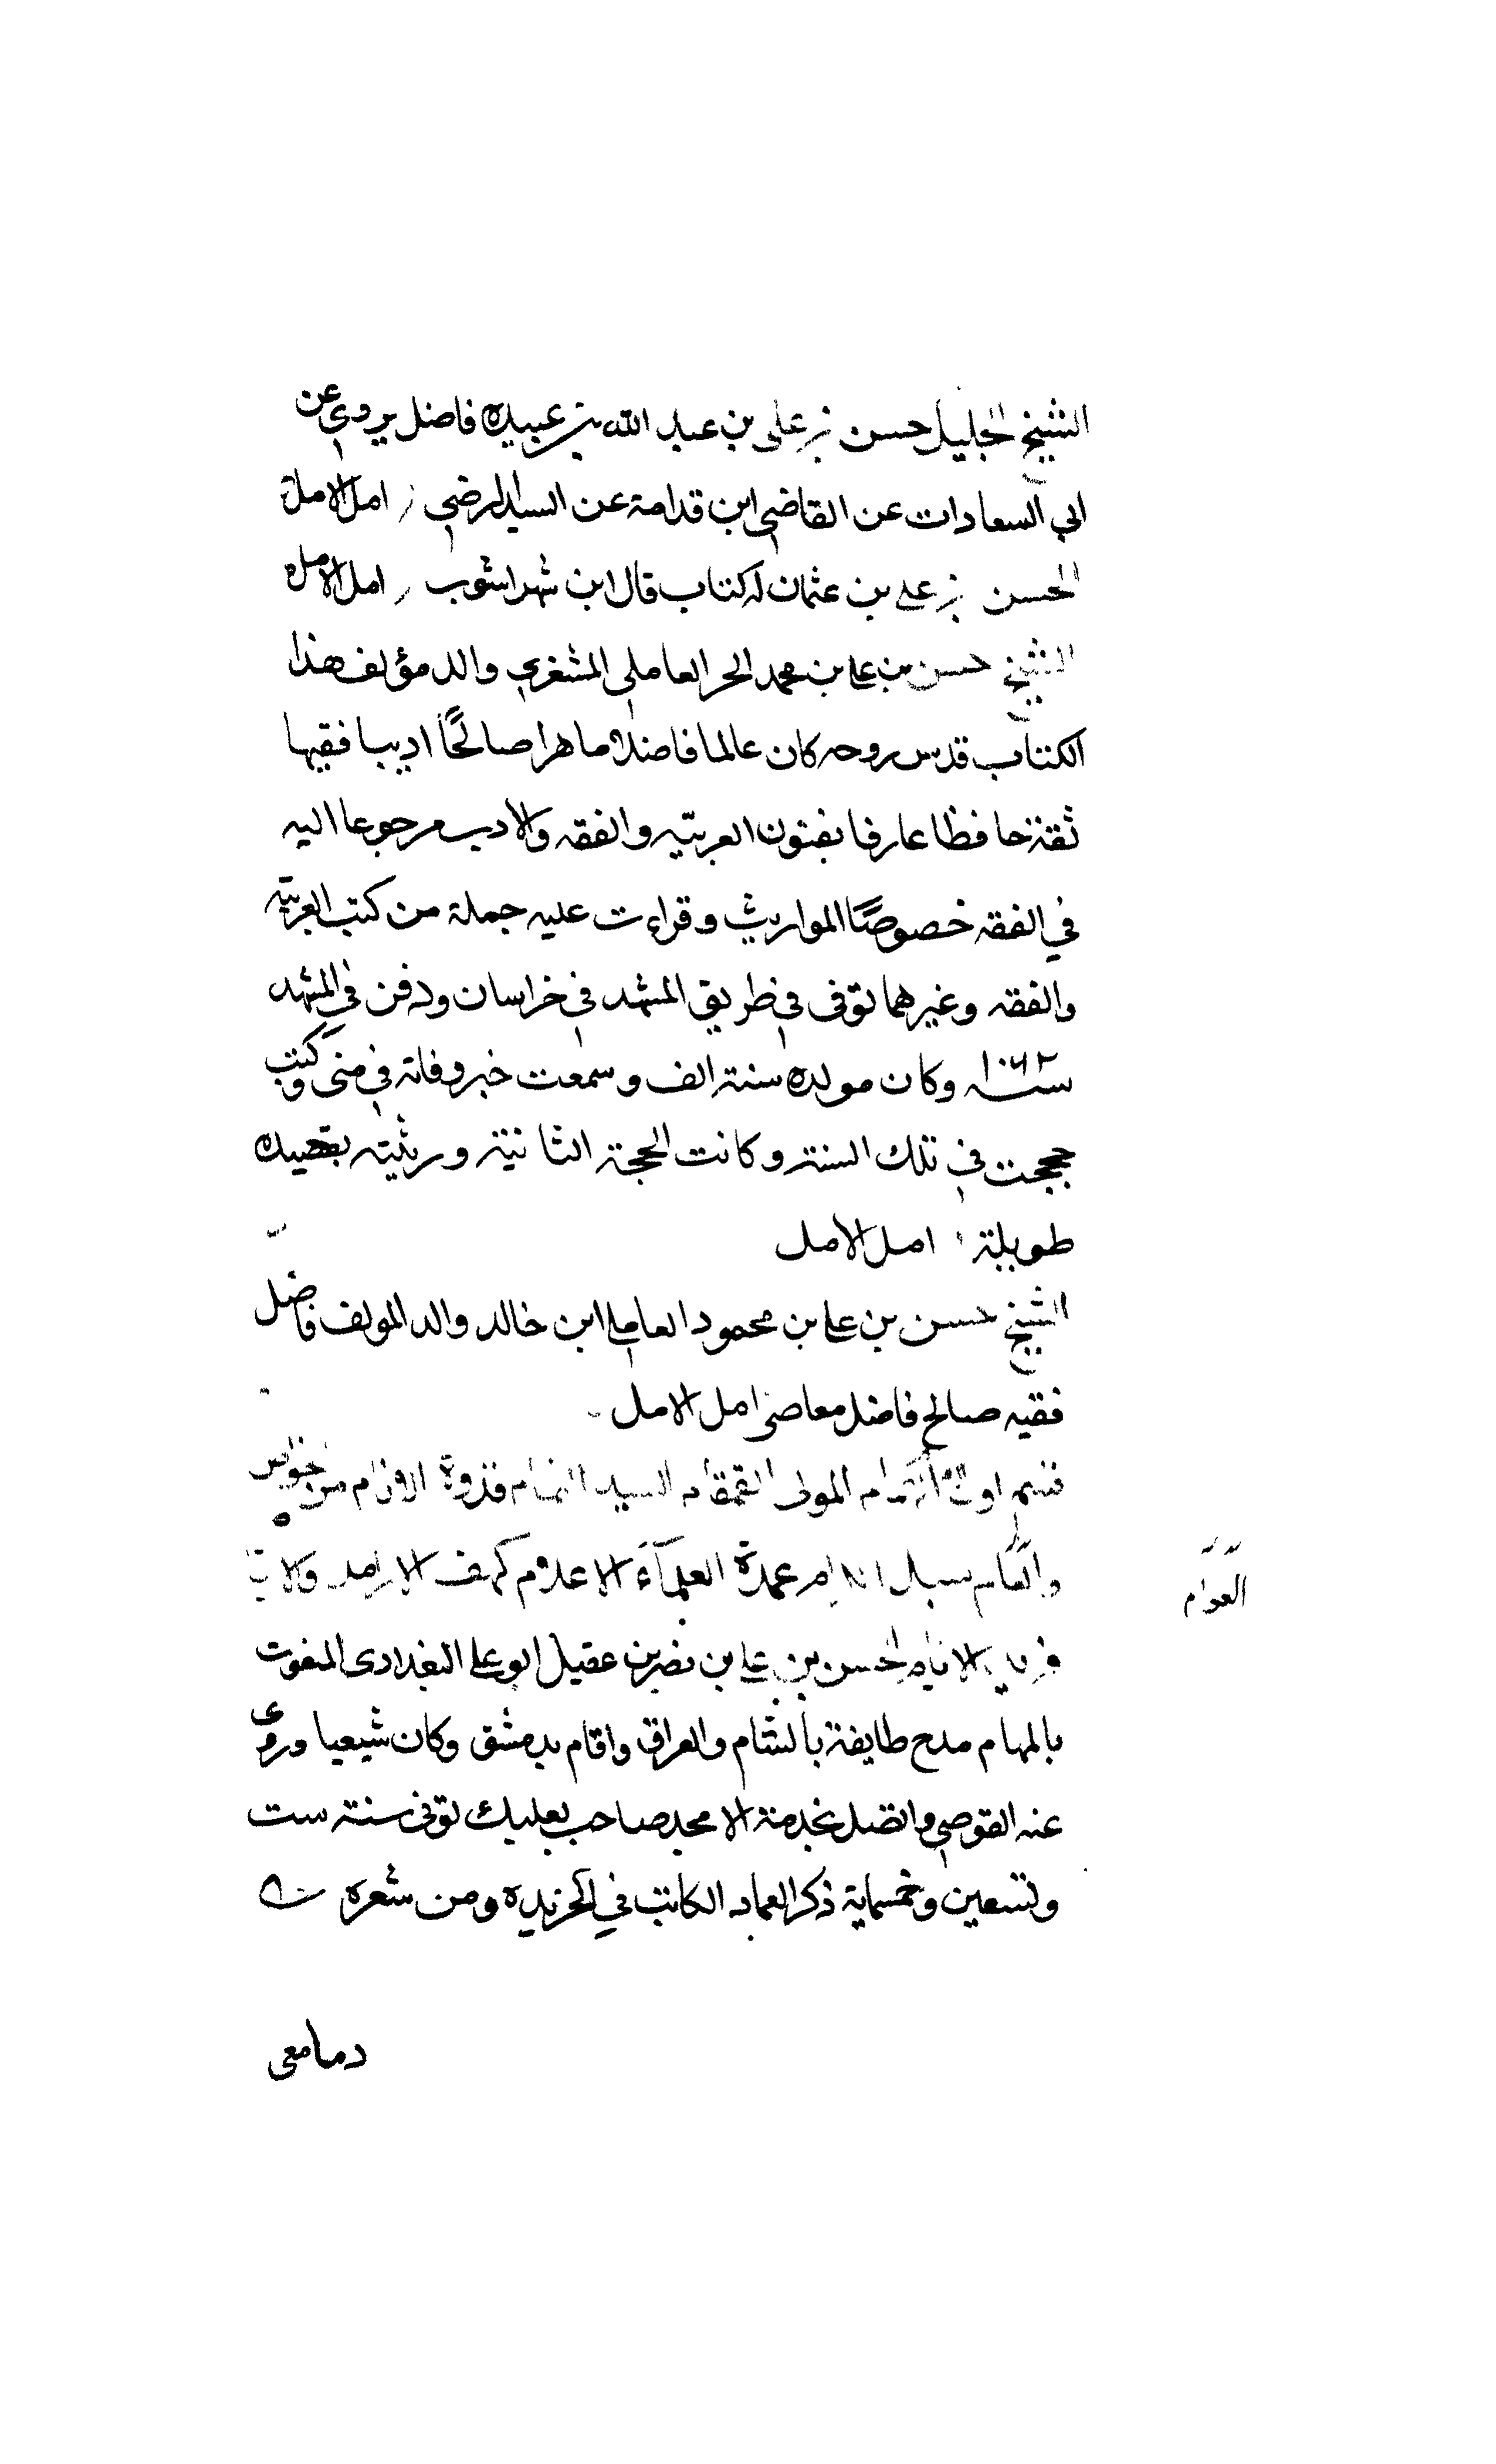 الشيخ الجليل حسن بن علي بن عبد الله بن عبيده فاضل يروي عن
ابي السعادات عن القاضي ابن قدامة عن السيد الرضي امل الامل
الحسن بن علي بن عثمان له كتاب قال ابن شهراشوب امل الامل
الشيخ حسن بن علي بن محمد الحر العاملي المشغري والد مؤلف هذا
الكتاب قدس روحه كان عالما فاضلا ماهرا صالحًا اديبا فقيها
ثقة حافظا عارفا بفنون العربيّه والفقه والادب مرجوعا اليه
في الفقه خصوصًا المواريث وقراءت عليه جملة من كتب العربيّه
والفقه وغيرهما توفى في طريق المشهد في خراسان ودفن في المشهد
سنة ١٠٦٢ وكان مولده سنة الف وسمعت خبر وفاته في منى وكنت
حججت في تلك السنة وكانت الحجة الثانية ورثيته بقصيده
طويلة امل الامل
الشيخ حسن بن علي بن محمود العاملي ابن خالد والد المولف فاضل
فقيه صالح فاضل معاصر امل الامل
المولى القمقام السيد قدوة من خواص
عمدة العلمآء الاعلام كهف
العوام
الحسن بن علي بن نصر بن عقيل ابو علي البغدادى المنعوت
بالهمام مدح طايفة بالشام والعراق واقام بدمشق وكان شيعيا وروى
عنه القوصي واتصل بخدمة الامجد صاحب بعلبك توفى سنة ست
وتسعين وخمسماية ذكر العماد الكاتب في الخريده ومن شعره
دمامعى